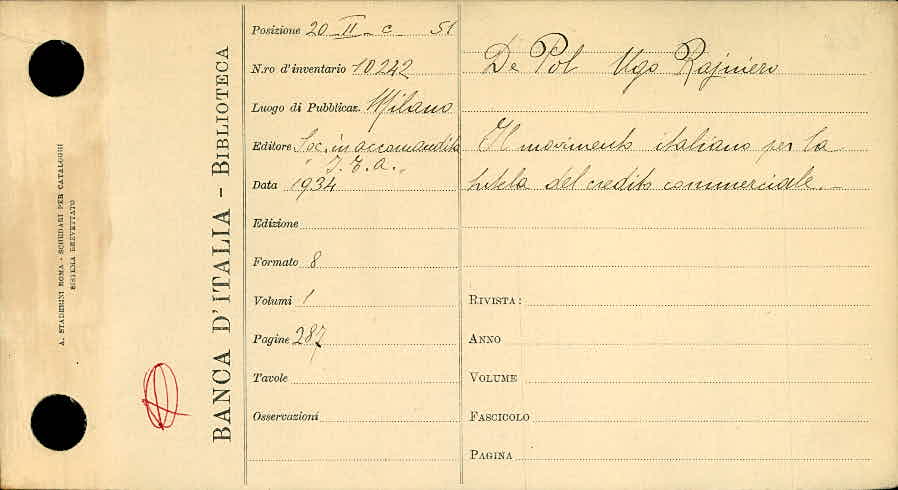 A. STADERINI ROMA - SCHEDARI PER CATALOGHI
SISTEMA BREVETTATO
BANCA D'ITALIA - BIBLIOTECA
Posizione 20 II - c 51
N.ro d'inventario 10242
Luogo di Pubblicaz. Milano
Editore Soc. in accomandita
"I.T.A."
Data 1934
Edizione
Formato 8
Volumi 1
Pagine 287
Tavole
Osservazioni
De Pol Ugo Rajniero
Il movimento italiano per la
tutela del credito commerciale. -
RIVISTA:
ANNO
VOLUME
FASCICOLO
PAGINA